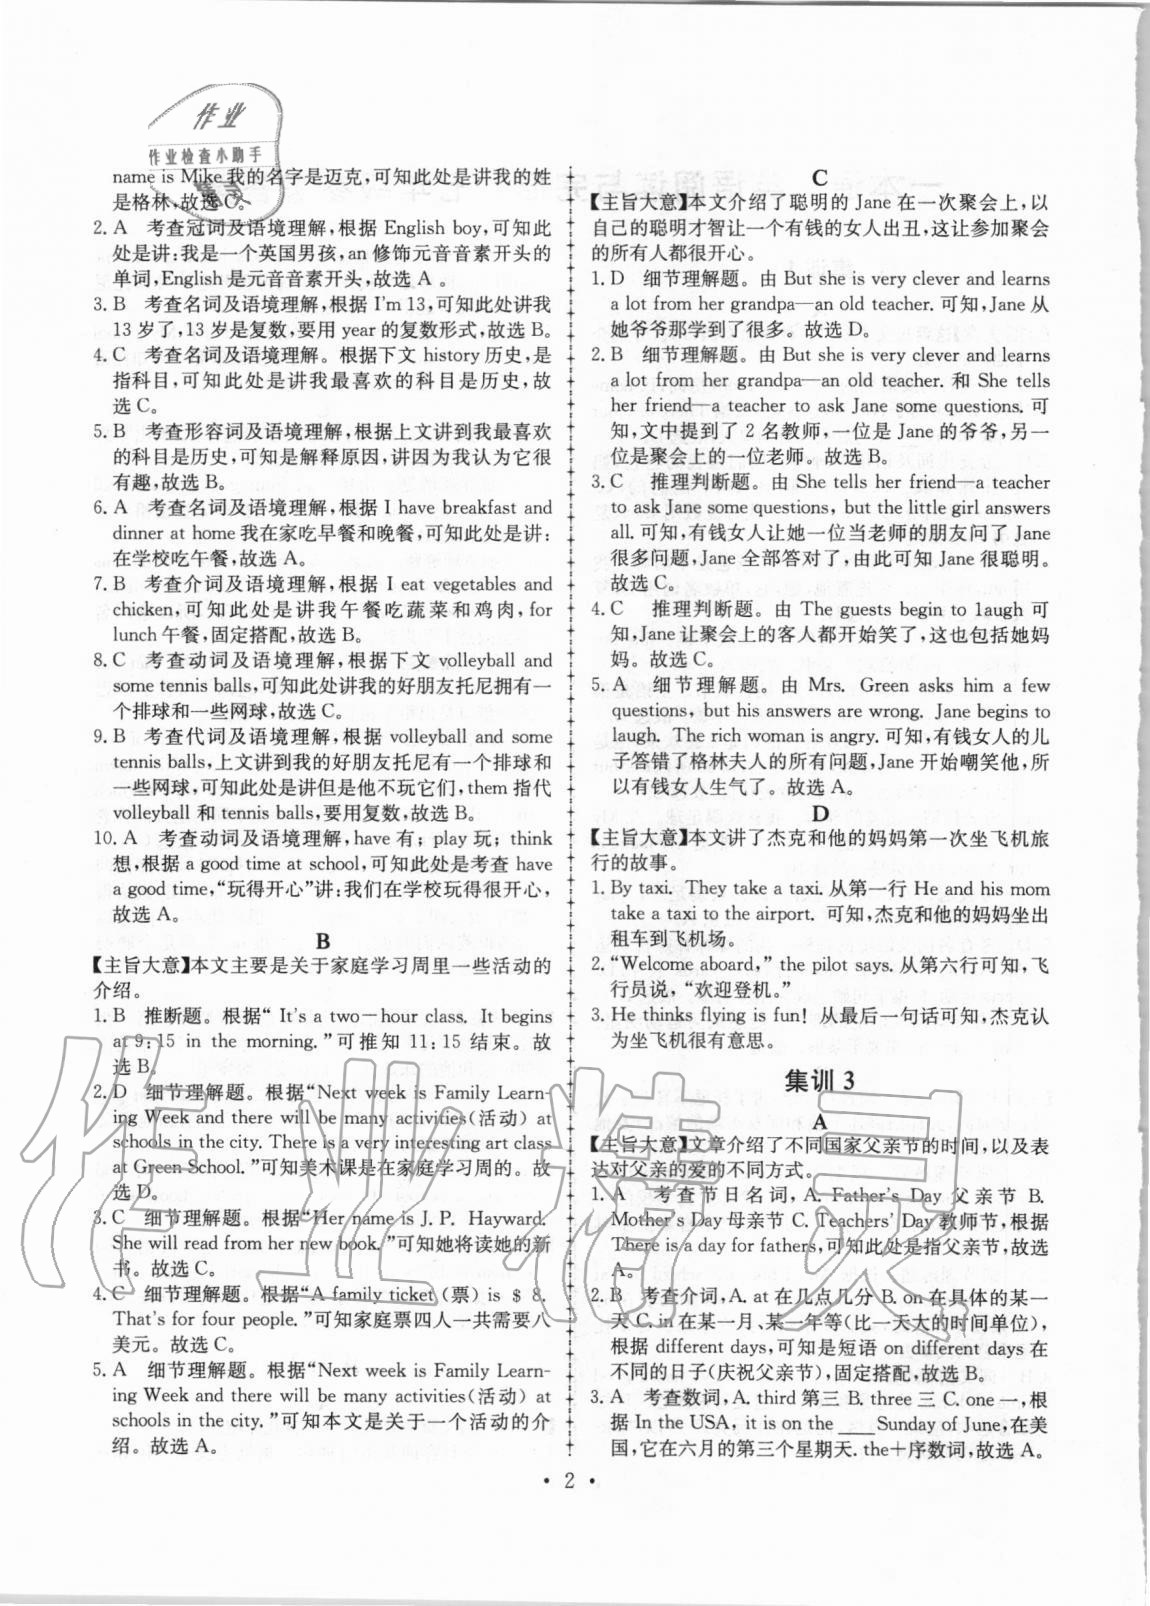 作业
作业检查小助手
name is Mike我的名字是迈克,可知此处是讲我的姓
是格林,故选C。
2. A 考查冠词及语境理解,根据 English boy,可知此
处是讲:我是一个英国男孩,an 修饰元音音素开头的
单词,English是元音音素开头,故选A 。
3. B 考查名词及语境理解,根据 I'm 13,可知此处讲我
13岁了,13岁是复数,要用 year的复数形式,故选B。
4. C 考查名词及语境理解。根据下文 history历史,是
指科目,可知此处是讲我最喜欢的科目是历史,故
选C。
5. B 考查形容词及语境理解,根据上文讲到我最喜欢
的科目是历史,可知是解释原因,讲因为我认为它很
有趣,故选B。
6. A 考查名词及语境理解,根据 I have breakfast and
dinner at home我在家吃早餐和晚餐,可知此处是讲:
在学校吃午餐,故选A。
7. B 考查介词及语境理解,根据 I eat vegetables and
chicken,可知此处是讲我午餐吃蔬菜和鸡肉,for
lunch午餐,固定搭配,故选B。
8. C 考查动词及语境理解,根据下文 volleyball and
some tennis balls,可知此处讲我的好朋友托尼拥有一
个排球和一些网球,故选C。
9. B 考查代词及语境理解,根据 volleyball and some
tennis balls,上文讲到我的好朋友托尼有一个排球和
一些网球,可知此处是讲但是他不玩它们,them 指代
volleyball 和 tennis balls,要用复数,故选B。
10. A 考查动词及语境理解,have 有; play 玩; think
想,根据 a good time at school,可知此处是考查 have
a good time,“玩得开心”讲:我们在学校玩得很开心,
故选A。
B
【主旨大意】本文主要是关于家庭学习周里一些活动的
介绍。
1. B 推断题。根据“ It's a two-hour class. It begins
at 9:15 in the morning. ”可推知 11:15 结束。故
选B。
2. D 细节理解题。根据“Next week is Family Learn-
ing Week and there will be many activities(活动) at
schools in the city. There is a very interesting art class
at Green School. ”可知美术课是在家庭学习周的。故
选D。
3. C 细节理解题。根据“Her name is J. P. Hayward.
She will read from her new book. ”可知她将读她的新
书。故选C。
4. C 细节理解题。根据“A family ticket (票) is $ 8.
That's for four people. ”可知家庭票四人一共需要八
美元。故选C。
5. A 细节理解题。根据“Next week is Family Learn-
ing Week and there will be many activities(活动) at
schools in the city. ”可知本文是关于一个活动的介
绍。故选A。
C
【主旨大意】本文介绍了聪明的 Jane 在一次聚会上,以
自己的聪明才智让一个有钱的女人出丑,这让参加聚会
的所有人都很开心。
1. D 细节理解题。由 But she is very clever and learns
a lot from her grandpa—an old teacher. 可知,Jane 从
她爷爷那学到了很多。故选D。
2. B 细节理解题。由 But she is very clever and learns
a lot from her grandpa—an old teacher. 和 She tells
her friend—a teacher to ask Jane some questions. 可
知,文中提到了 2 名教师,一位是 Jane 的爷爷,另一
位是聚会上的一位老师。故选B。
3. C 推理判断题。由 She tells her friend—a teacher
to ask Jane some questions, but the little girl answers
all. 可知,有钱女人让她一位当老师的朋友问了 Jane
很多问题,Jane 全部答对了,由此可知 Jane 很聪明。
故选C。
4. C 推理判断题。由 The guests begin to laugh 可
知,Jane 让聚会上的客人都开始笑了,这也包括她妈
妈。故选C。
5. A 细节理解题。由 Mrs. Green asks him a few
questions, but his answers are wrong. Jane begins to
laugh. The rich woman is angry. 可知,有钱女人的儿
子答错了格林夫人的所有问题,Jane 开始嘲笑他,所
以有钱女人生气了。故选A。
D
【主旨大意】本文讲了杰克和他的妈妈第一次坐飞机旅
行的故事。
1. By taxi. They take a taxi. 从第一行 He and his mom
take a taxi to the airport. 可知,杰克和他的妈妈坐出
租车到飞机场。
2. “Welcome aboard,” the pilot says. 从第六行可知,飞
行员说,“欢迎登机。”
3. He thinks flying is fun! 从最后一句话可知,杰克认
为坐飞机很有意思。
集训 3
A
【主旨大意】文章介绍了不同国家父亲节的时间,以及表
达对父亲的爱的不同方式。
1. A 考查节日名词,A. Father's Day 父亲节 B.
Mother's Day母亲节 C. Teachers' Day教师节,根据
There is a day for fathers,可知此处是指父亲节,故选
A。
2. B 考查介词,A. at 在几点几分 B. on 在具体的某一
天 C. in 在某一月、某一年等(比一天大的时间单位),
根据 different days,可知是短语 on different days 在
不同的日子(庆祝父亲节),固定搭配,故选B。
3. A 考查数词,A. third 第三 B. three 三 C. one 一,根
据 In the USA, it is on the ____Sunday of June,在美
国,它在六月的第三个星期天. the+序数词,故选A。
• 2 •
作业精灵